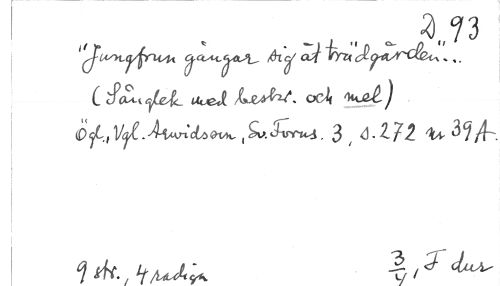 D. 93
"Jungfrun gångar sig åt trädgården"...
(Sånglek med beskr. och mel)
Ögl., Vgl. Arwidsson, Sv. Forns. 3, s. 272 nr 39A.
9 str., 4radiga
3/4, F dur